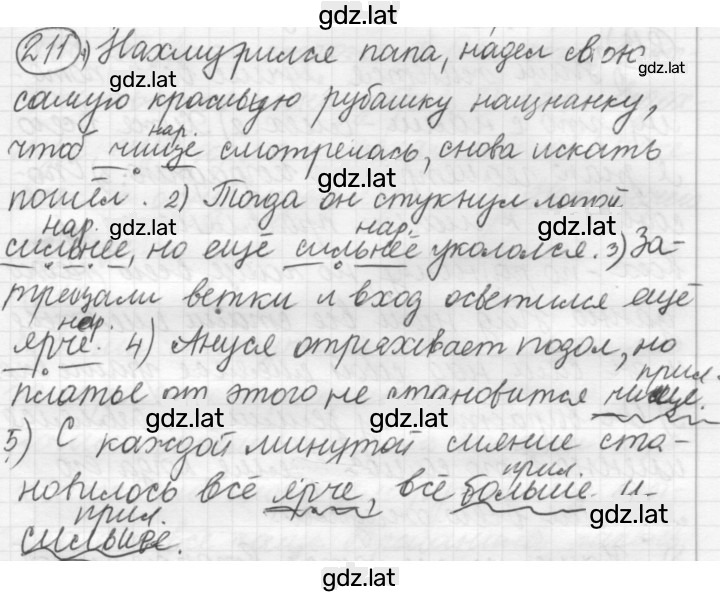 gdz.lat
211 1) Нахмурился папа, надел свою
gdz.lat gdz.lat
самую красивую рубашку наизнанку,
нар.
чтоб чище смотрелась, снова искать
gdz.lat
пошёл. 2) Тогда он стукнул лапой
нар. нар.
gdz.lat gdz.lat
сильнее, но ещё сильнее укололся. 3) За-
трещали ветки и вход осветился ещё
нар.
ярче. 4) Ануся отряхивает подол, но
прил.
платье от этого не становится чище.
gdz.lat gdz.lat
5) С каждой минутой сияние ста-
прил.
новилось всё ярче, всё больше и
прил. gdz.lat
сильнее.
gdz.lat